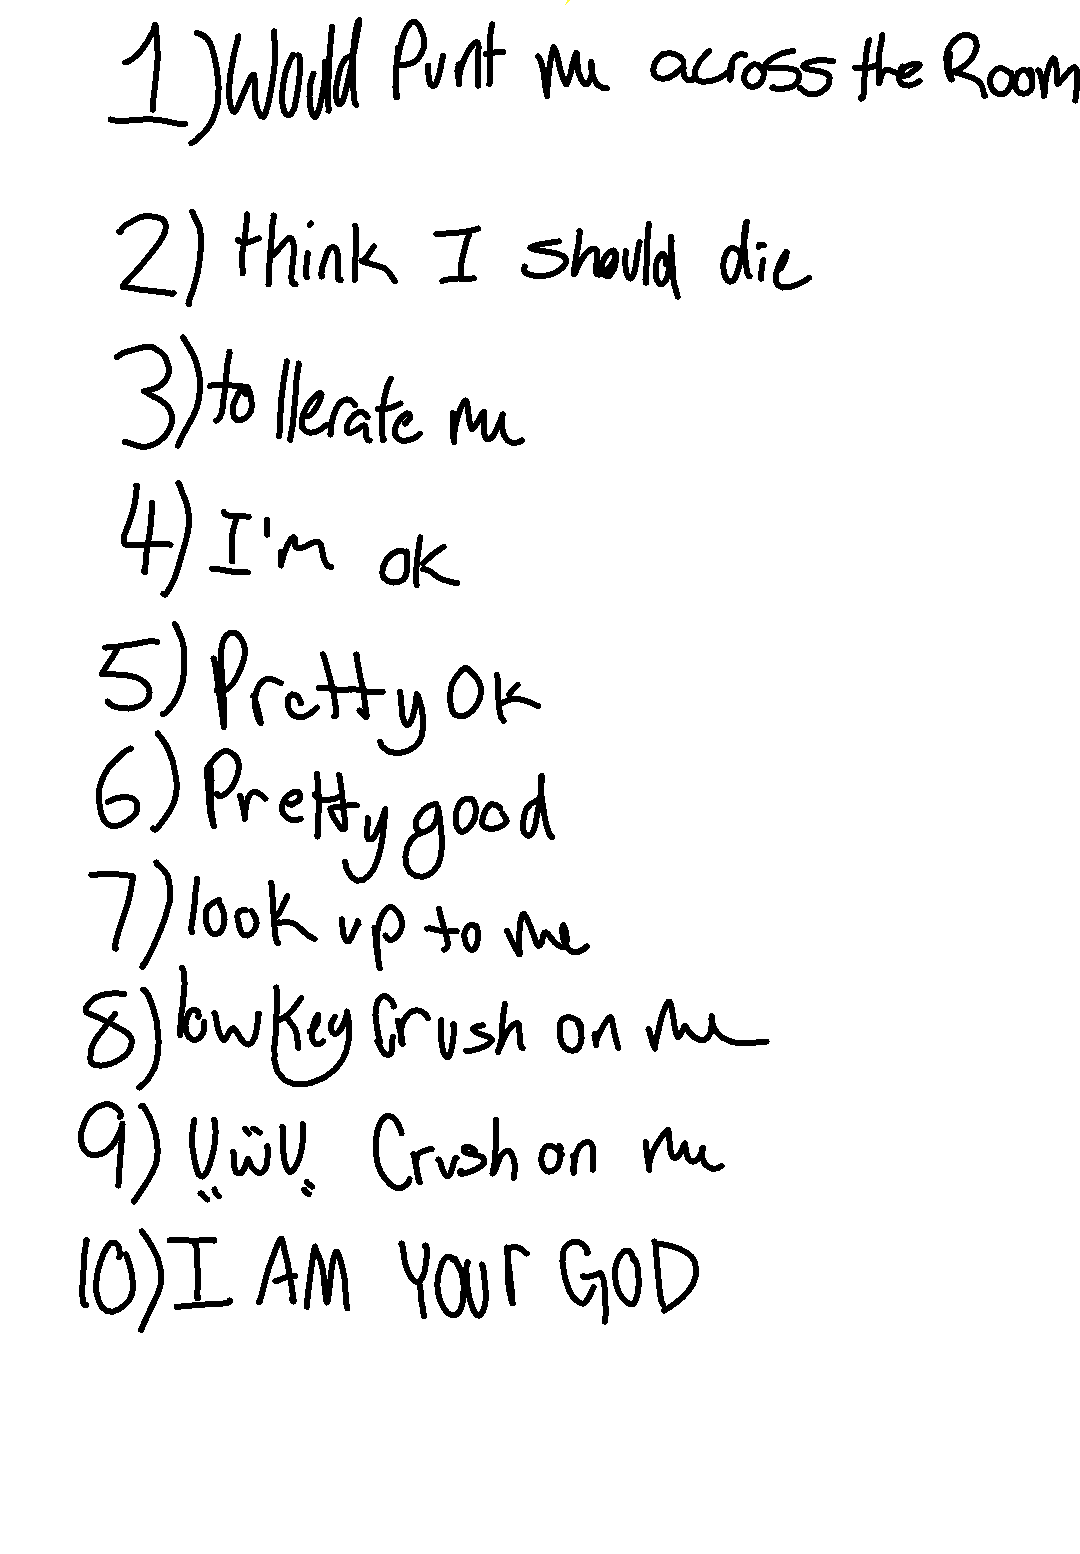 1) Would Punt me across the Room
2) think I should die
3) tollerate me
4) I'm ok
5) Pretty OK
6) Pretty good
7) look up to me
8) lowkey Crush on me
9) UẅU Crush on me
10) I AM YOUr GOD